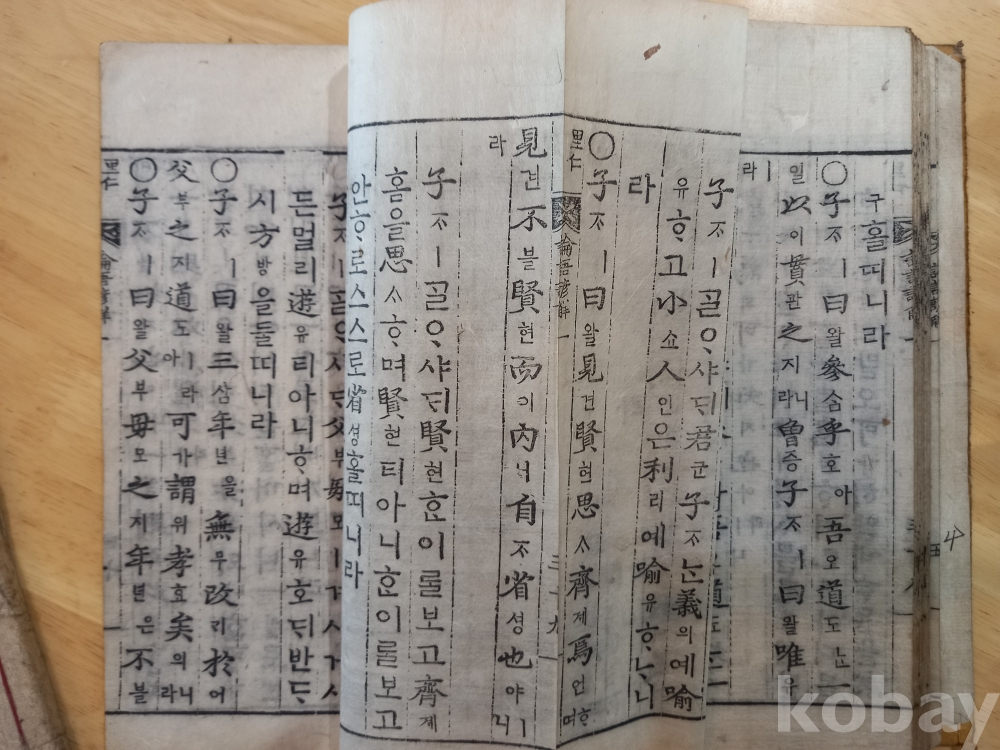 구홀띠니라
○子ᄌᆞㅣ曰왈參ᄉᆞᆷ乎호아吾오道도ᄂᆞᆫ一
일以이貫관之지라니曾증子ᄌᆞㅣ曰왈唯유
ㅣ라
子ᄌᆞㅣᄀᆞᆯᄋᆞ샤ᄃᆡ君군子ᄌᆞᄂᆞᆫ義의예喩
유ᄒᆞ고小쇼人인은利리예喩유ᄒᆞᄂᆞ니
라
○子ᄌᆞㅣ曰왈見견賢현思ᄉᆞ齊졔焉언ᄒᆞ며
里仁 論語諺解一 三十九
見견不블賢현而이內ᄂᆡ自ᄌᆞ省셩也야ㅣ니
라
子ᄌᆞㅣᄀᆞᆯᄋᆞ샤ᄃᆡ賢현ᄒᆞᆫ이ᄅᆞᆯ보고齊졔
홈을思ᄉᆞᄒᆞ며賢현티아니ᄒᆞᆫ이ᄅᆞᆯ보고
안ᄒᆞ로스스로省셩홀띠니라
子ᄌᆞㅣᄀᆞᆯᄋᆞ샤ᄃᆡ父부母모ㅣ
든멀리遊유티아니ᄒᆞ며遊유호ᄃᆡ반ᄃᆞ
시方방을둘띠니라
○子ᄌᆞㅣ曰왈三삼年년을無무改ᄀᆡ於어
父부之지道도ㅣ아라可가謂위孝효矣의니라
○子ᄌᆞㅣ曰왈父부母모之지年년은不블
里仁 論語諺解一
kobay